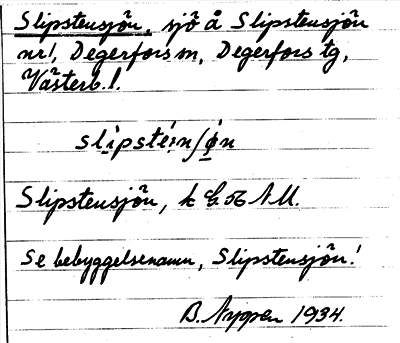 Slipstensjön, sjö å Slipstensjön
nr 1, Degerfors sn, Degerfors tg,
Västerb. l.
slìpsté:nʃø̀n
Slipstensjön, k G. 56 N.U.
Se bebyggelsenamn, Slipstensjön!
B. Nygren 1934.